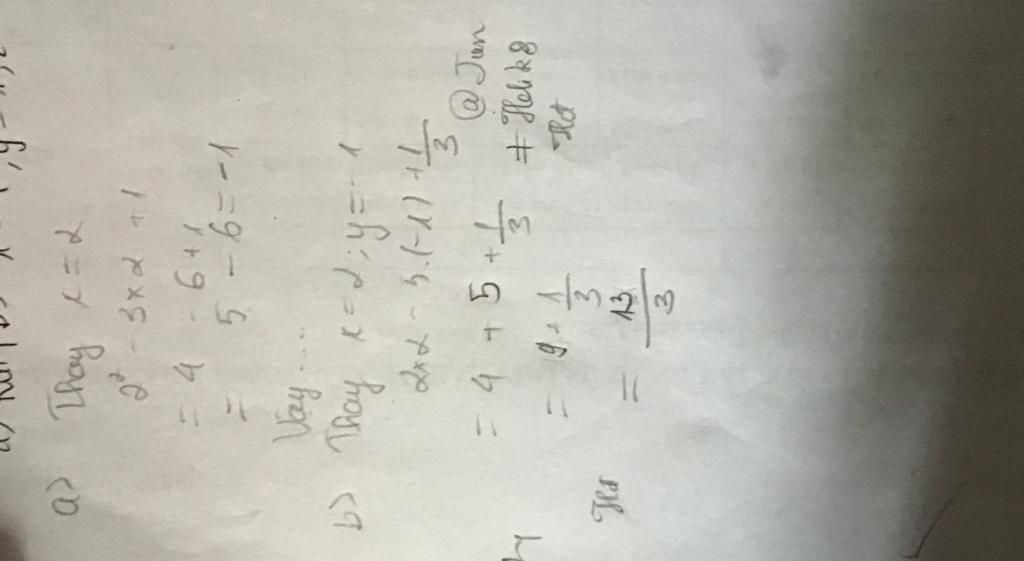 a) Thay x = 2
2² - 3 × 2 + 1
= 4 - 6 + 1
= 5 - 6 = -1
Vậy ...
b) Thay x = 2; y = -1
2×2 - 5.(-1) + 1/3
= 4 + 5 + 1/3
= 9 + 1/3
= 13/3
@ Jun
Hd
Hd